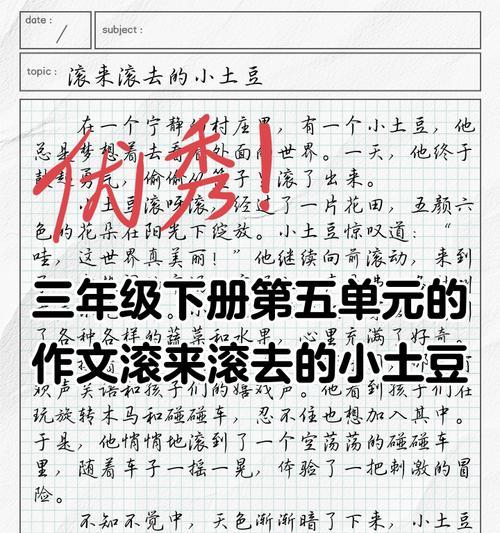 date :
subject :
topic : 滚来滚去的小土豆
在一个宁静的村庄里，有一个小土豆，他
总是梦想着去看看外面的世界。一天，他终于
鼓起勇气，偷偷从篮子里滚了出来。
优秀！
小土豆滚呀滚，经过了一片花田，五颜六
色的花朵在阳光下绽放。小土豆惊叹道：“
哇，这世界真美丽！”他继续向前滚动，来到
三年级下册第五单元的
了各种各样的蔬菜和水果，心里充满了好奇。
作文滚来滚去的小土豆
欢声笑语和孩子们的嬉戏声。他看到孩子们在
玩旋转木马和碰碰车，忍不住也想加入其中。
于是，他悄悄地滚到了一个空荡荡的碰碰车
里，随着车子一摇一晃，体验了一把刺激的冒
险。
不知不觉中，天色渐渐暗了下来，小土豆